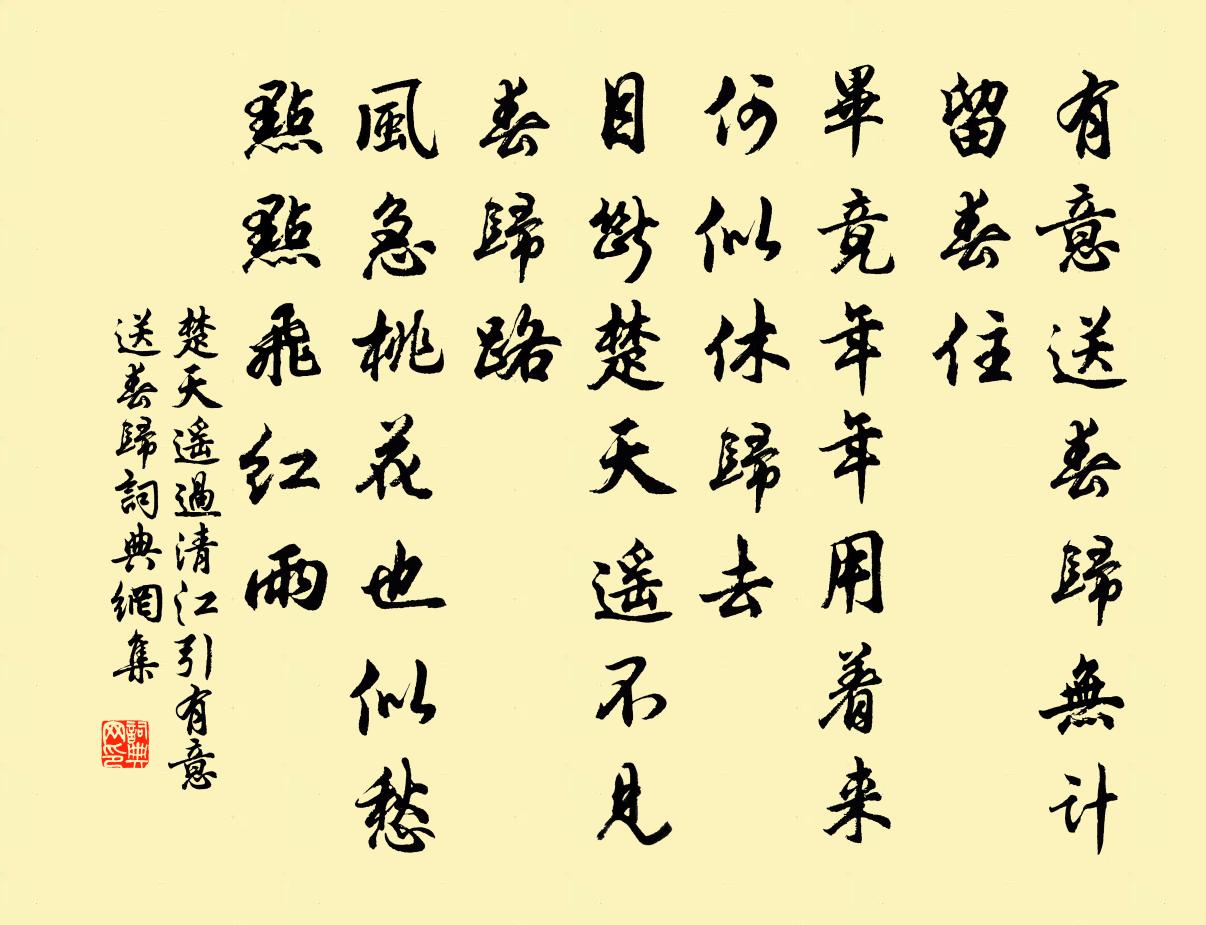 有意送春歸無計
留春住
畢竟年年用着来
何似休歸去
目斷楚天遥不見
春歸路
風急桃花也似愁
點點飛紅雨
楚天遥過清江引有意
送春歸詞典網集
詞典
网印